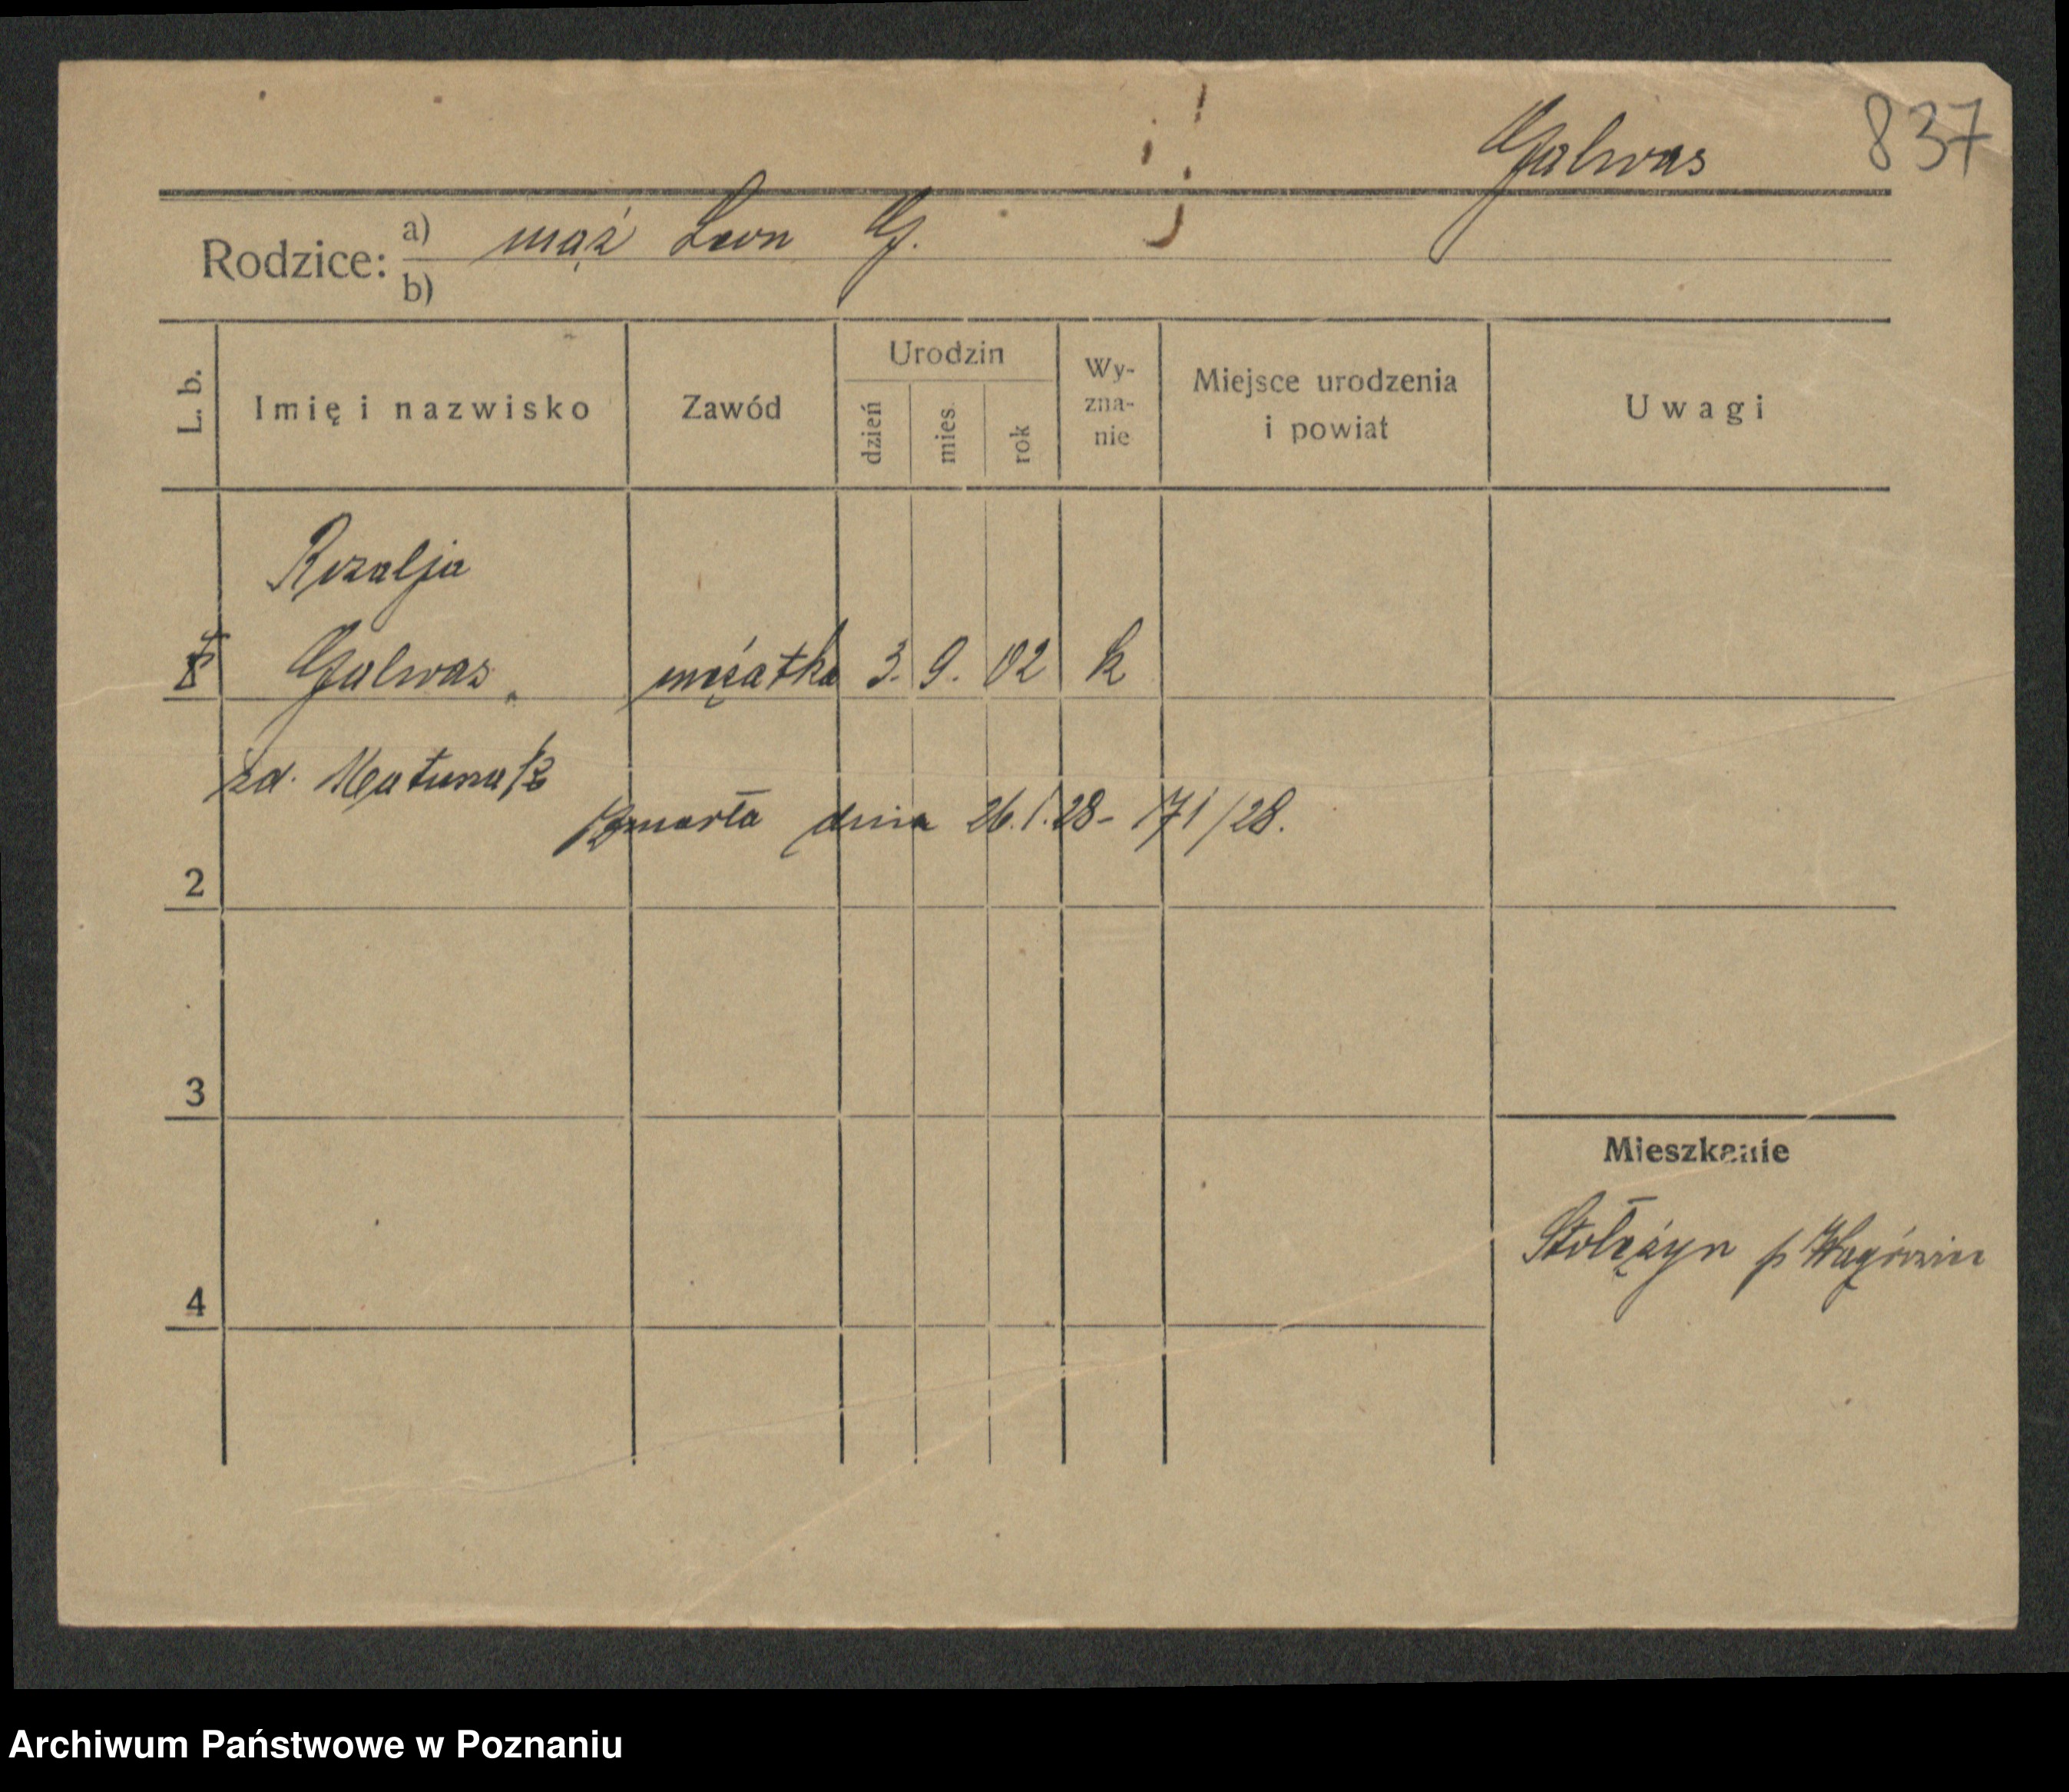 Galwas 837
Rodzice: a) mąż Leon G.
b)
L. b.
Imię i nazwisko
Zawód
Urodzin
dzień
mies.
rok
Wy-
zna-
nie
Miejsce urodzenia
i powiat
Uwagi
Rozalja
Galwas mężatka 3. 9. 02 k
zd.
zmarła dnia 26.1.28 - 171/28.
2
3
4
Mieszkanie
Stołężyn p
Archiwum Państwowe w Poznaniu